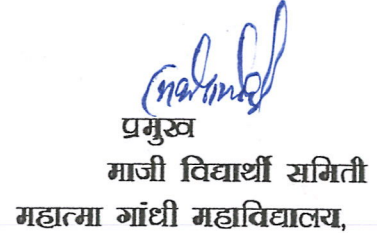 प्रमुख
माजी विद्यार्थी समिती
महात्मा गांधी महाविद्यालय,